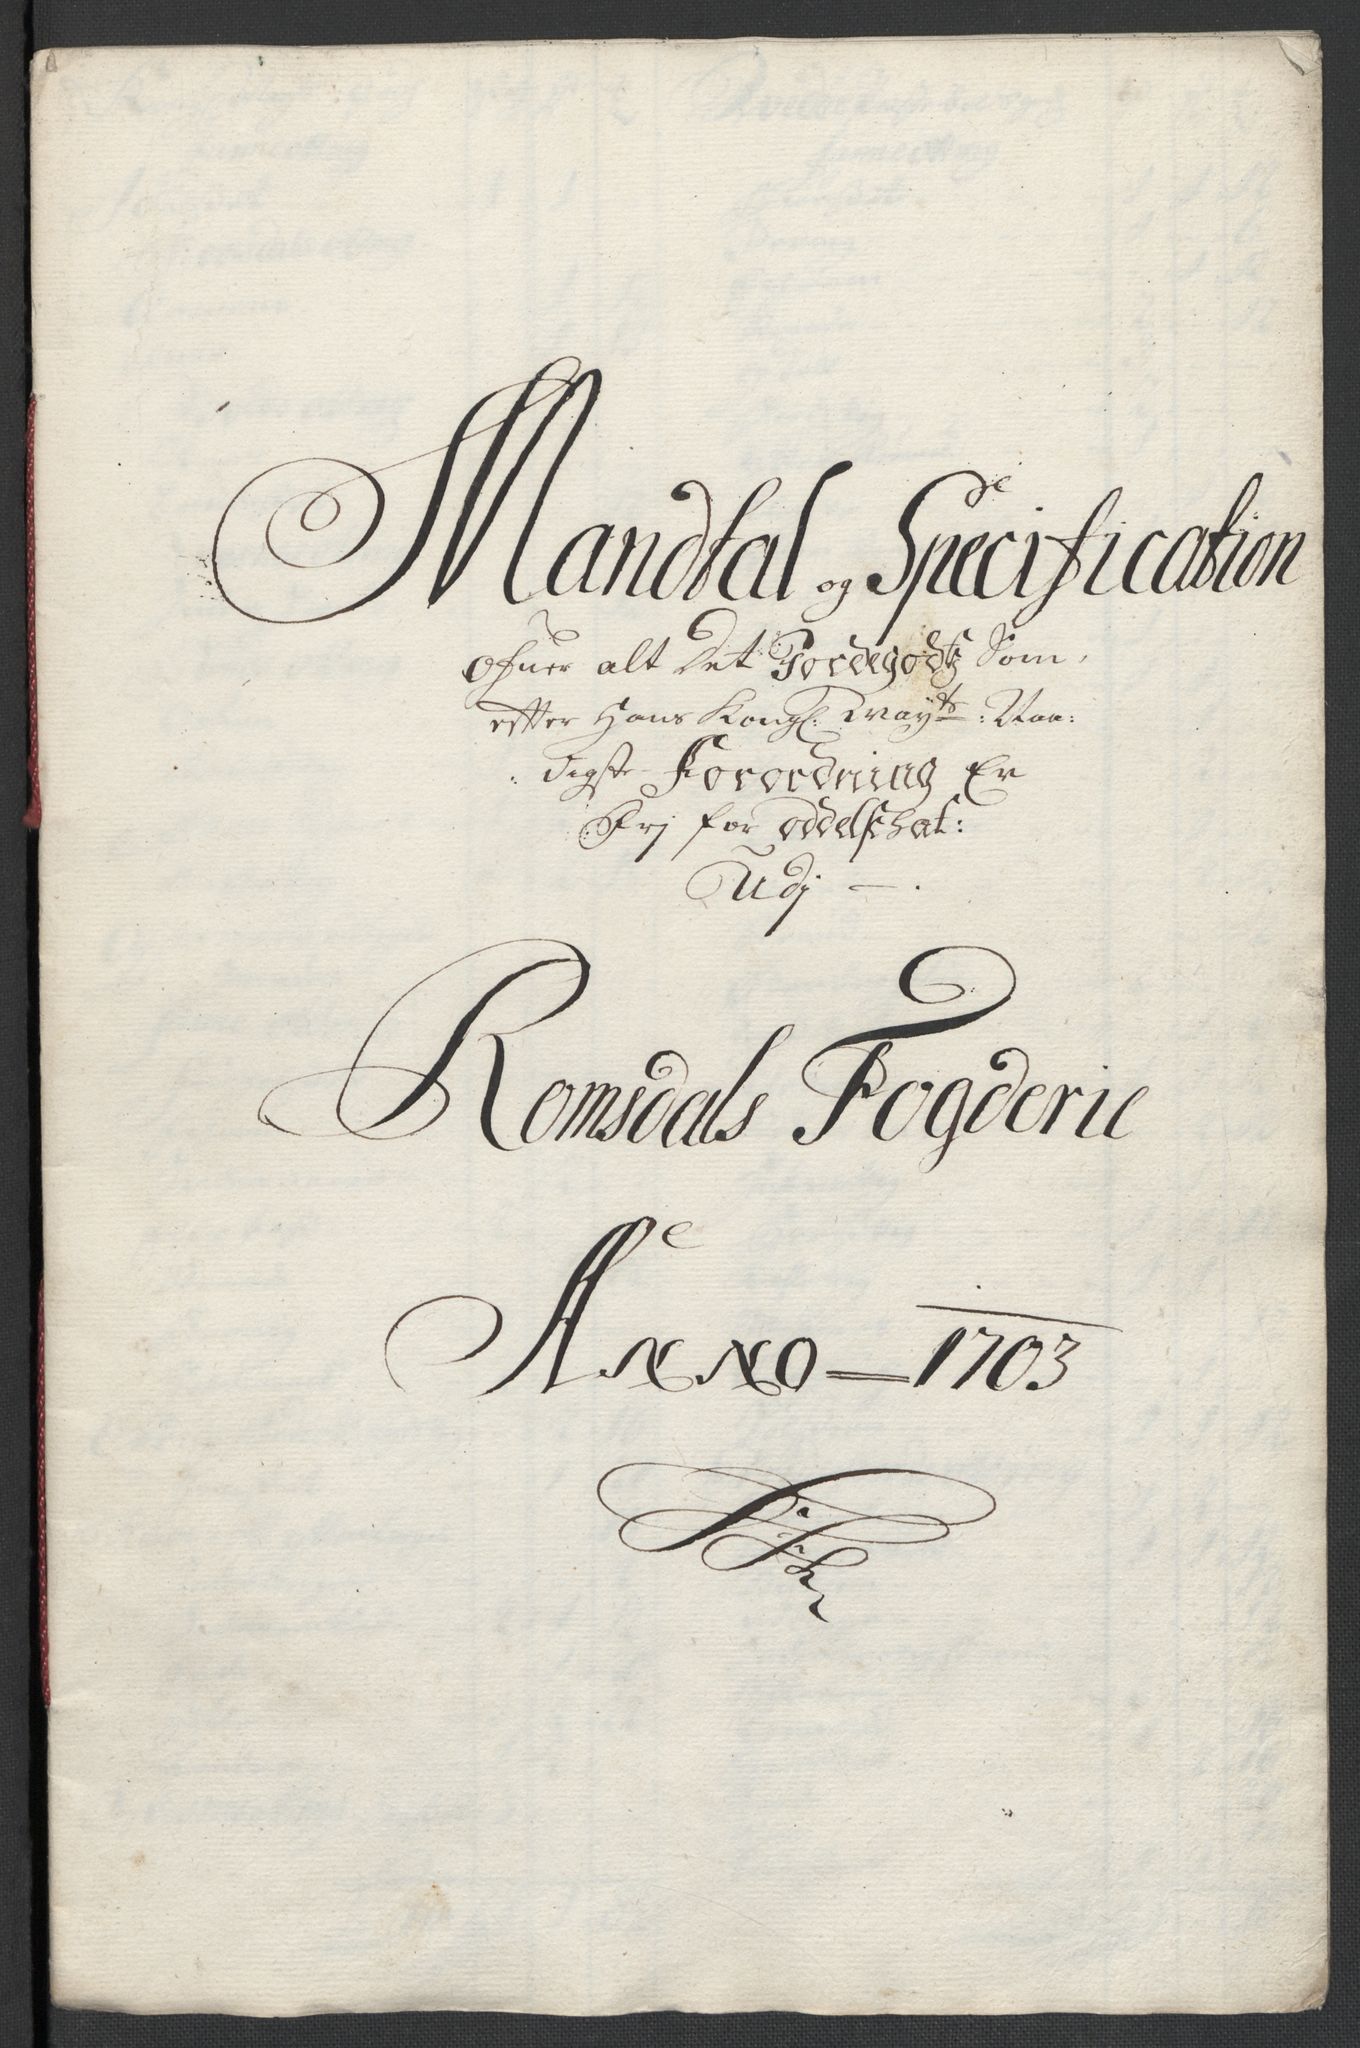 Mandtal og Specification
Ofuer alt Det Jordegodtz Som
effter Hans Kongl: Mayts: Naa:
digste Forordning Er
Frj for oddelschat:
Udj —
Romsdals Fogderie
Anno = 1703